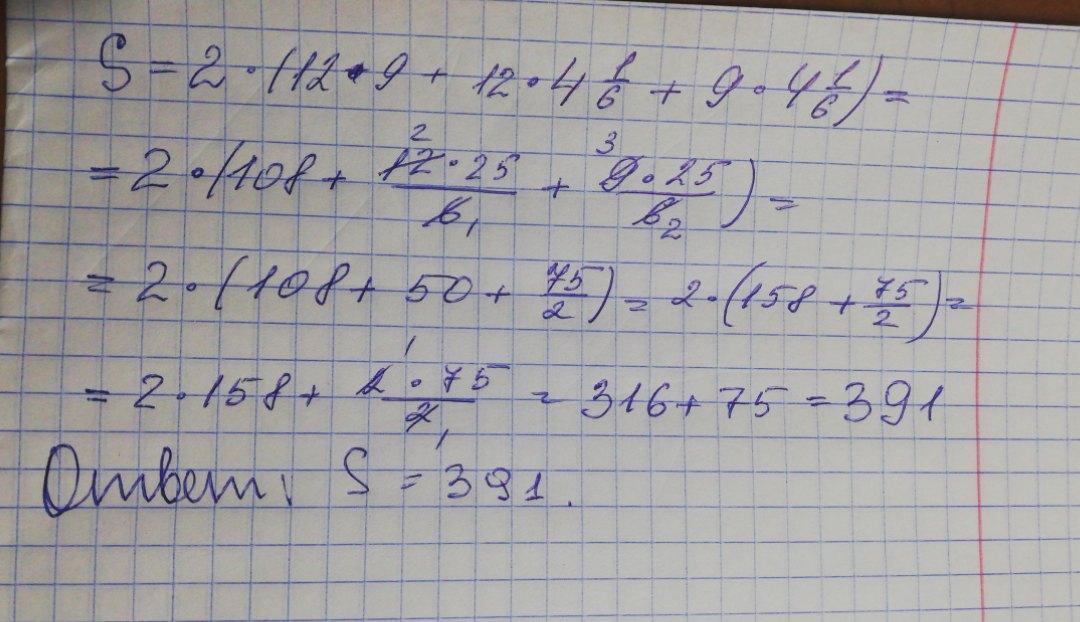 S = 2 · (12 · 9 + 12 · 4 1/6 + 9 · 4 1/6) =
= 2 · (108 + 12² · 25 / 6₁ + 9³ · 25 / 6₂) =
= 2 · (108 + 50 + 75/2) = 2 · (158 + 75/2) =
= 2 · 158 + 2¹ · 75 / 2₁ = 316 + 75 = 391
Ответ: S = 391.